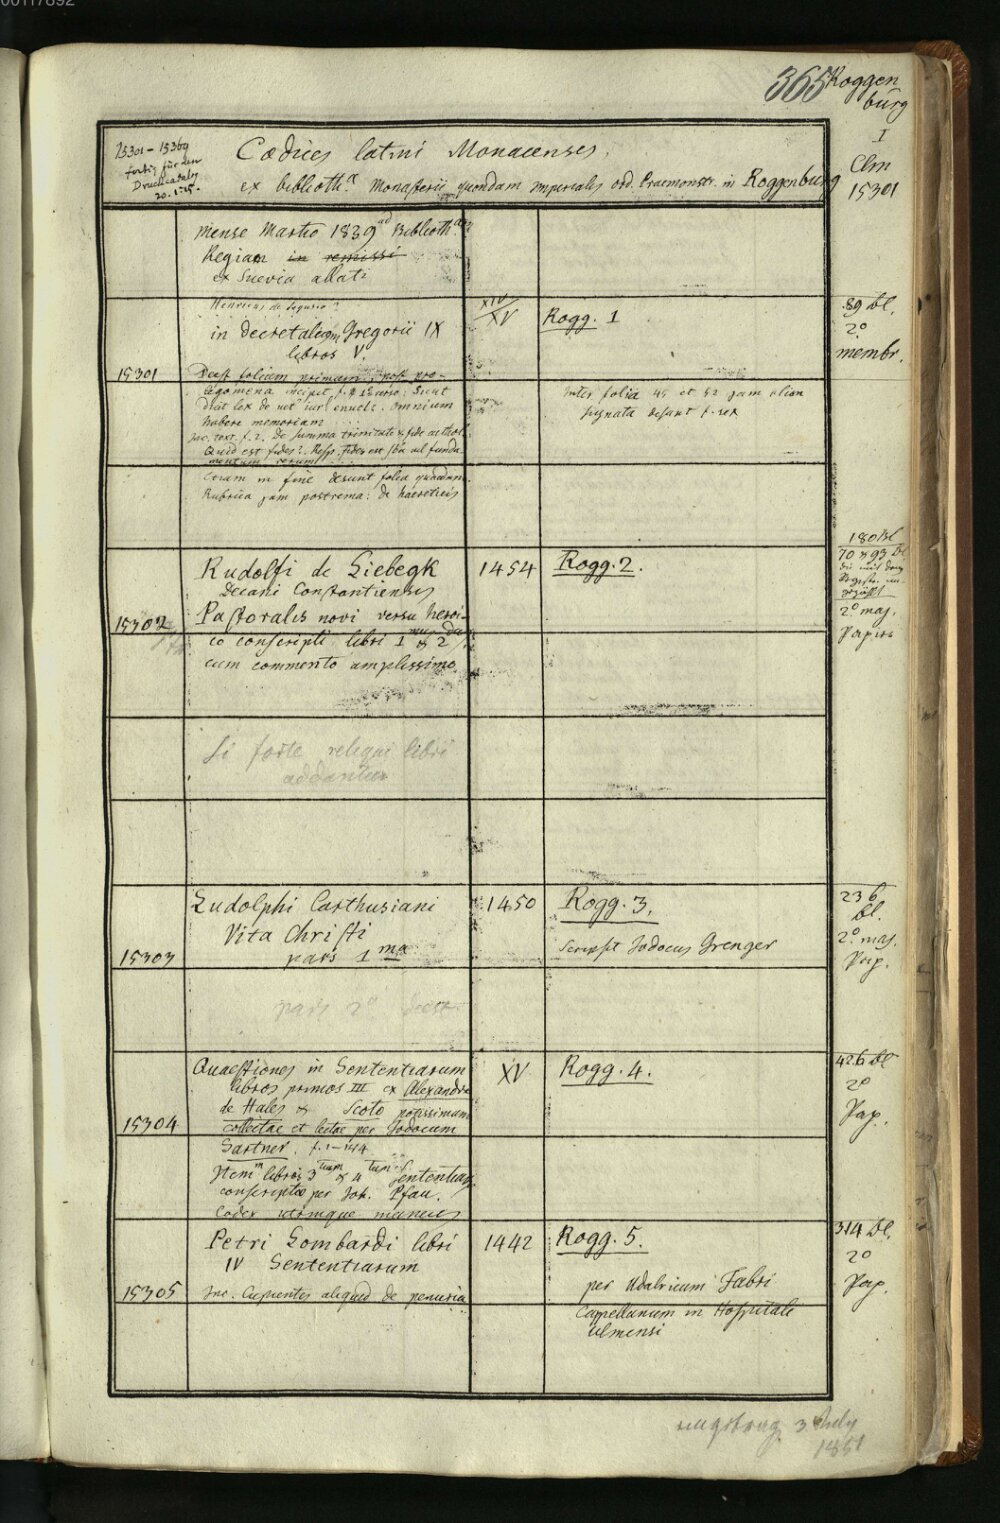 00117892
365 Roggen
burg
I
Clm
15301
15301 – 15369
fertig für den
Druckcatalog
Codices latini Monacenses
ex biblioth.ª Monasterii quondam imperialis ord. Praemonstr. in Roggenburg
mense Martio 1839 ad Biblioth.am
Regiam in remissi
ex Suevia allati
Henricus de Segusio?
in decretalium Gregorii IX
libros V.
15301
XIV/XV
Rogg. 1
89 Bl.
2º
membr.
Deest folium primum; post pro-
legomena incipit f. verso: Sicut
omnium
habere memoriam
f. 2. De summa trinitate & fide cathol.
Quid est fides? Resp. fides est
mentum rerum
Etiam in fine desunt folia quaedam.
Rubrica jam postrema: de haereticis
Inter folia 45 et 52 jam olim
signata desunt f. sex
Rudolfi de Liebegk
Decani Constantiensis
15302
Pastoralis novi versu heroi-
co conscripti libri 1mus & 2dus
cum commento amplissimo
1454
Rogg. 2.
180 Bl
70 & 93 Bl
2º maj.
Papier
Si forte reliqui libri
addantur
Ludolphi Carthusiani
Vita Christi
pars 1ma
15303
1450
Rogg. 3.
Scripsit Jodocus Grenger
236
Bl.
2º maj.
Pap.
pars 2ª deest
Quaestiones in Sententiarum
libros primos III ex Alexandro
de Hales & Scoto potissimum
15304
collectae et lectae per Jodocum
Gartner. f. 1–144
Item in libros 3tium & 4tum Sententiar.
conscriptae per Joh. Pfau.
Codex utriusque manus
XV
Rogg. 4.
426 Bl
2º
Pap.
Petri Lombardi libri
IV Sententiarum
15305
Inc. Cupientes aliquid de penuria
1442
Rogg. 5.
per Udalricum Fabri
Cappellanum in Hospitale
Ulmensi
314 Bl.
2º
Pap.
Augsburg 3 July
1851